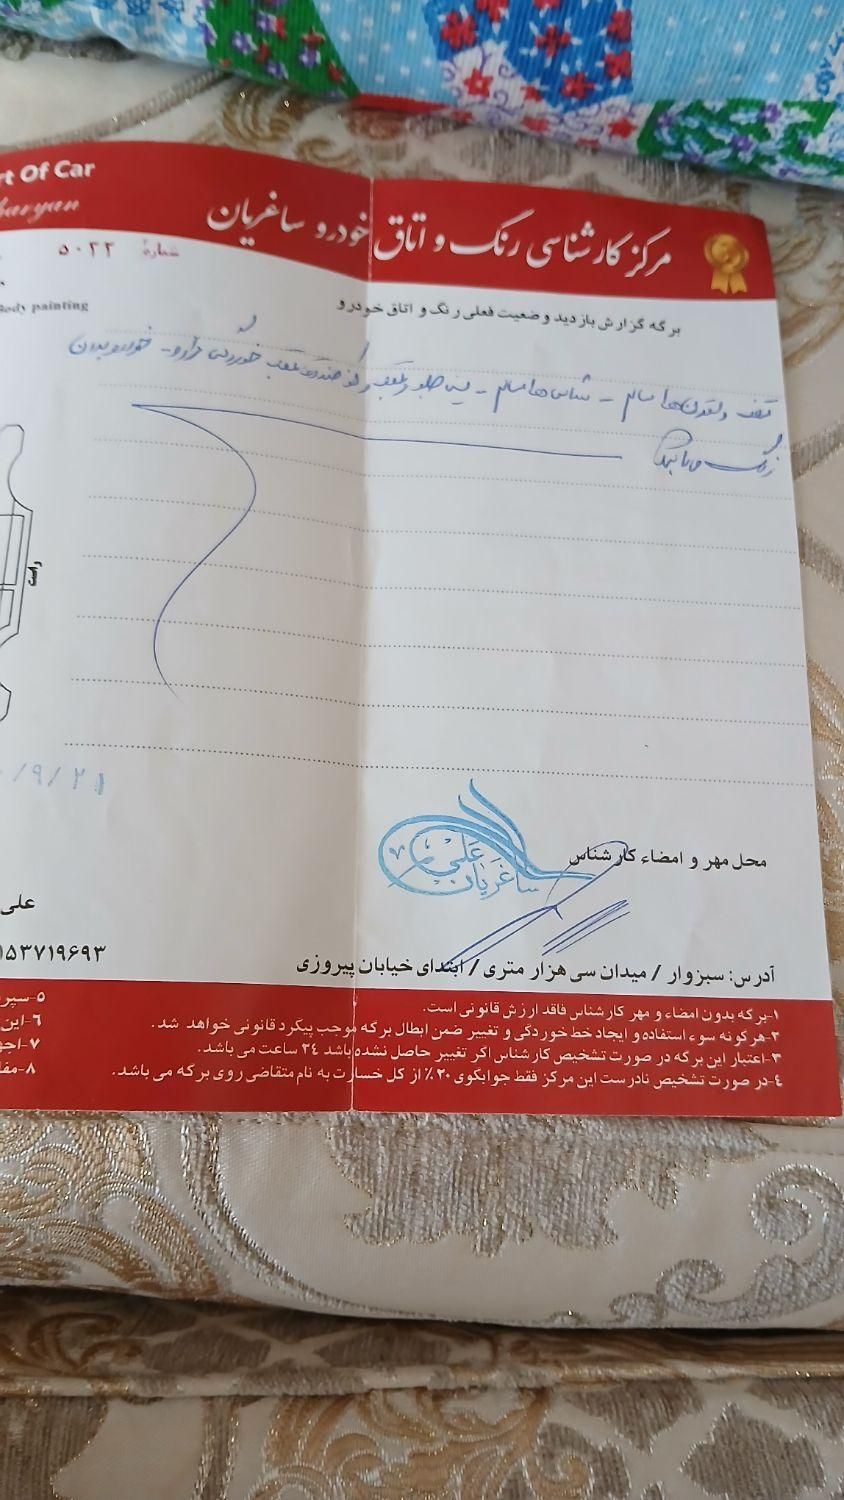 rt Of Car
مرکز کارشناسی رنگ و اتاق خودرو ساغریان
شماره ۵۰۲۲
Body painting
برگه گزارش بازدید وضعیت فعلی رنگ و اتاق خودرو
سقف و ستون‌ها سالم - شاسی‌ها سالم - سینی جلو و عقب و کف صندوق عقب خوردگی دارد - خودرو بدون
رنگ می‌باشد
راست
/۹/۲۱
محل مهر و امضاء کارشناس
علی ساغریان
علی
آدرس: سبزوار / میدان سی هزار متری / ابتدای خیابان پیروزی
۱۵۳۷۱۹۶۹۳
۱-برگه بدون امضاء و مهر کارشناس فاقد ارزش قانونی است.
۲-هرگونه سوء استفاده و ایجاد خط خوردگی و تغییر ضمن ابطال برگه موجب پیگرد قانونی خواهد شد.
۳-اعتبار این برگه در صورت تشخیص کارشناس اگر تغییر حاصل نشده باشد ۲۴ ساعت می باشد.
۴-در صورت تشخیص نادرست این مرکز فقط جوابگوی ۲۰٪ از کل خسارت به نام متقاضی روی برگه می باشد.
۵-سپر
۶-این
۷-اجه
۸-مفا